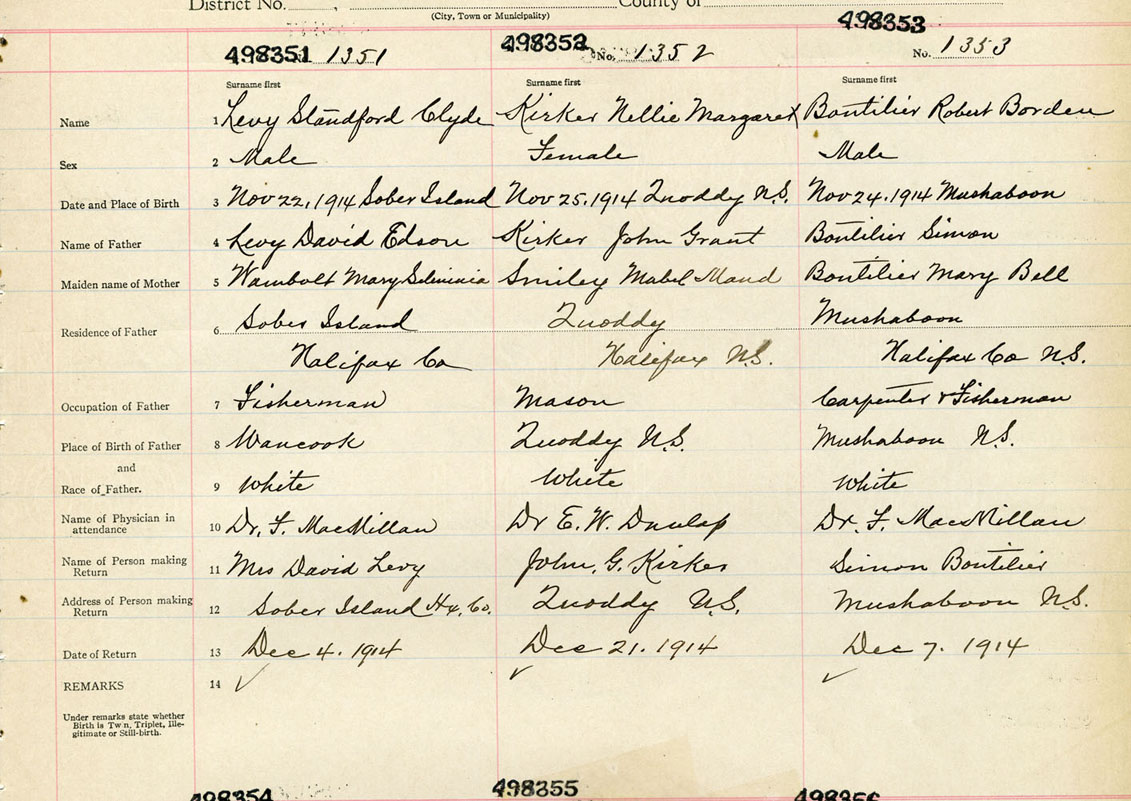 District No. , County of
(City, Town or Municipality)
498351 1351 498352 No. 1352 498353 No. 1353
Surname first Surname first Surname first
Name 1 Levy Standford Clyde Kirker Nellie Margaret Boutilier Robert Borden
Sex 2 Male Female Male
Date and Place of Birth 3 Nov 22, 1914 Sober Island Nov 25, 1914 Quoddy N.S. Nov 24, 1914 Mushaboon
Name of Father 4 Levy David Edson Kirker John Grant Boutilier Simon
Maiden name of Mother 5 Wambolt Mary Smiley Mabel Maud Boutilier Mary Bell
Residence of Father 6 Sober Island Quoddy Mushaboon
Halifax Co Halifax N.S. Halifax Co N.S.
Occupation of Father 7 Fisherman Mason Carpenter & Fisherman
Place of Birth of Father 8 Wancook Quoddy N.S. Mushaboon N.S.
and
Race of Father. 9 White White White
Name of Physician in attendance 10 Dr. F. MacMillan Dr E. W. Dunlap Dr. F. MacMillan
Name of Person making Return 11 Mrs David Levy John. G. Kirker Simon Boutilier
Address of Person making Return 12 Sober Island Hx. Co. Quoddy N.S. Mushaboon N.S.
Date of Return 13 Dec 4. 1914 Dec 21. 1914 Dec 7. 1914
REMARKS 14 ✓ ✓ ✓
Under remarks state whether
Birth is Twin, Triplet, Ille-
gitimate or Still-birth.
498354 498355 498356